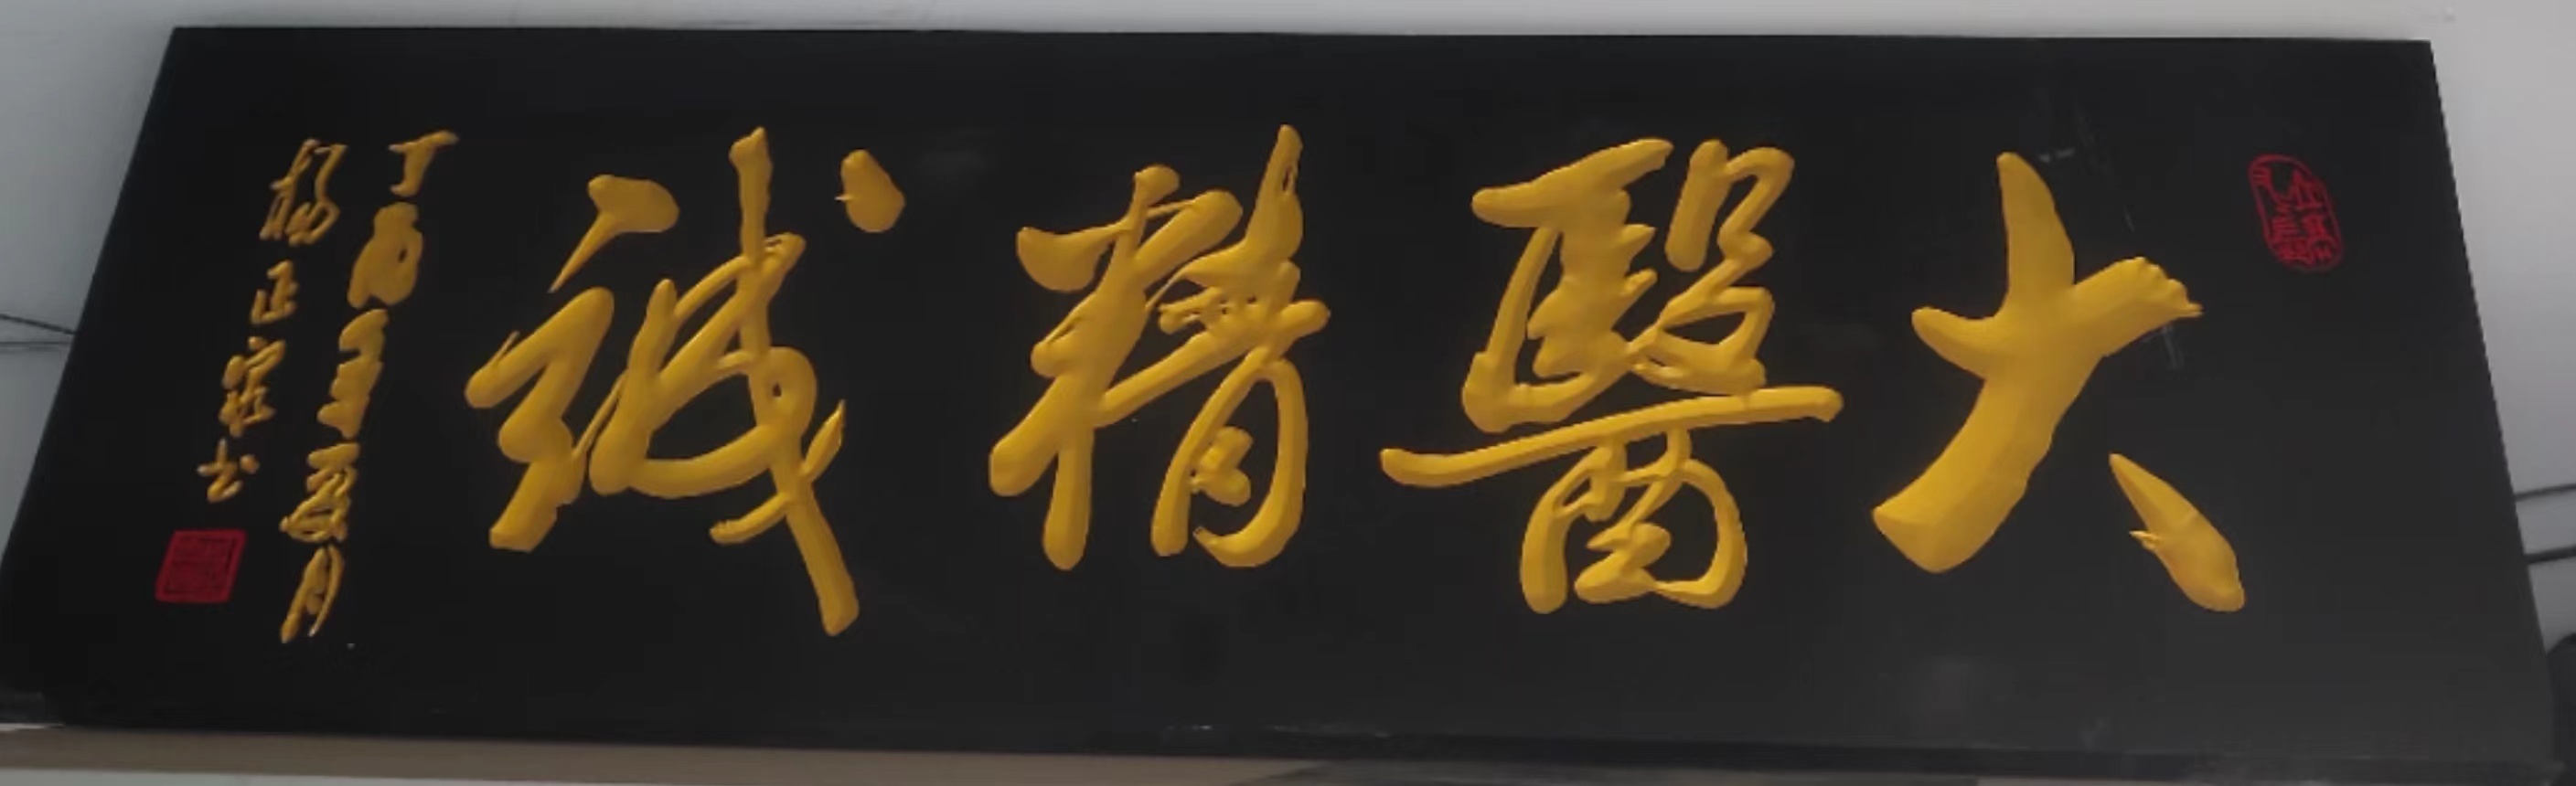 大醫精誠
丁酉年夏月
楊正家書